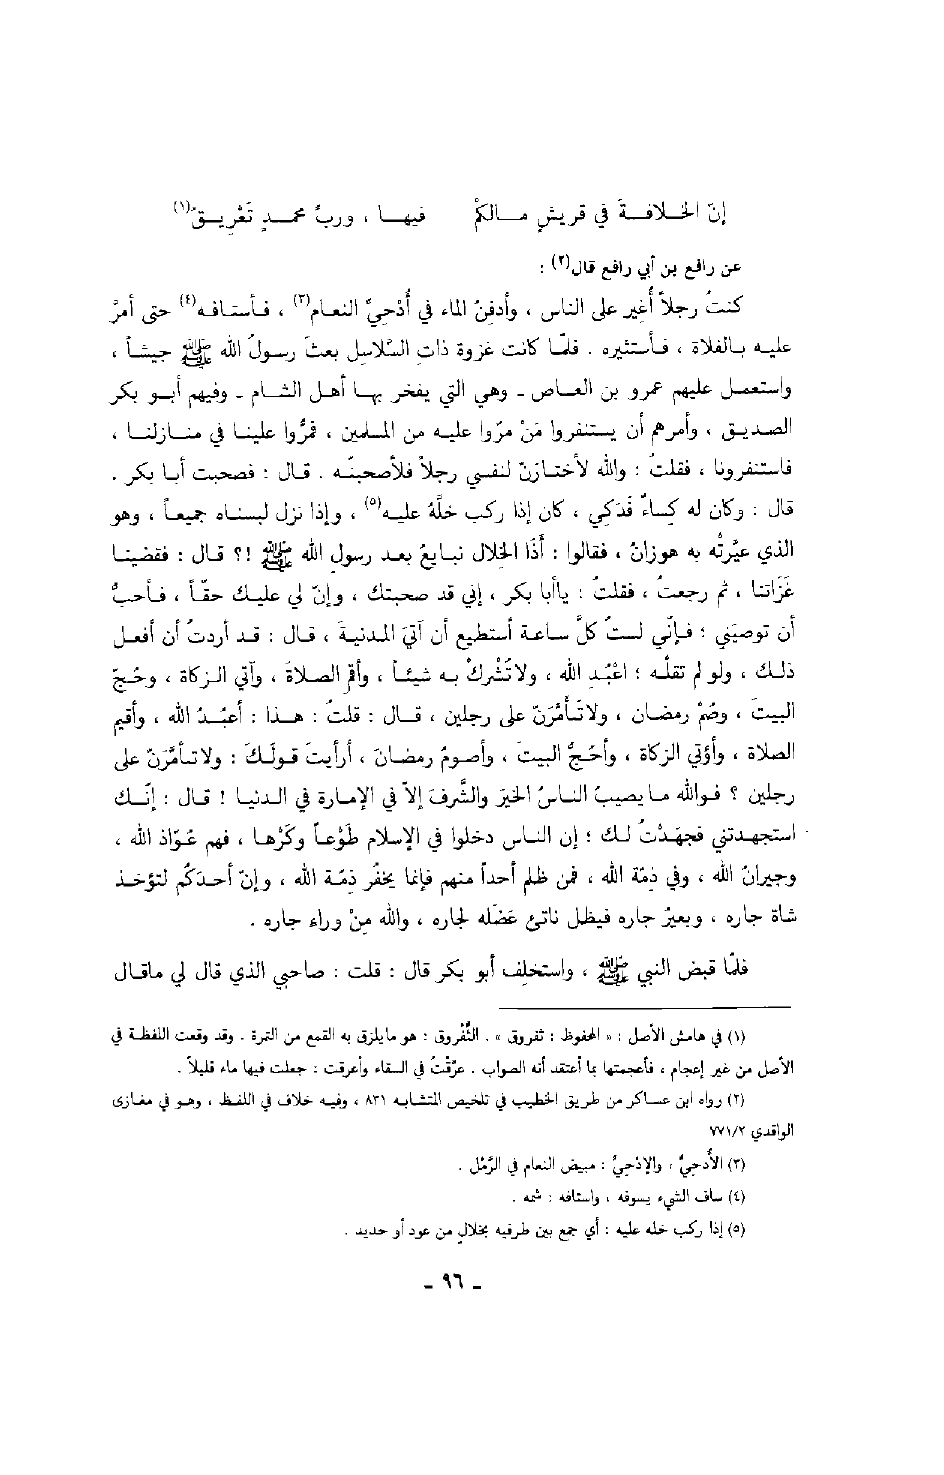 إنّ الخلافةَ في قريشٍ مالكمْ فيها ، وربِّ محمدٍ تَعْرِيقُ(١)
عن رافع بن أبي رافع قال(٢) :
كنتُ رجلاً أُغير على الناس ، وأدفِنُ الماء في أُدْحِيِّ النعام(٣) ، فأستافه(٤) حتى أمرّ
عليه بالفلاة ، فأستثيره . فلمّا كانت غزوة ذاتِ السَّلاسل بعثَ رسولُ الله ﷺ جيشاً ،
واستعمل عليهم عمرو بن العاص ـ وهي التي يفخر بها أهل الشام ـ وفيهم أبو بكر
الصديق ، وأمرهم أن يستنفروا مَنْ مرّوا عليه من المسلمين ، فمرُّوا علينا في منازلنا ،
فاستنفرونا ، فقلتُ : والله لأختارَنّ لنفسي رجلاً فلأصحبنّه . قال : فصحبت أبا بكر .
قال : وكان له كِساءٌ فَدَكي ، كان إذا ركب خلّهُ عليه(٥) ، وإذا نزل لبسناه جميعاً ، وهو
الذي عيّرتْه به هوزانُ ، فقالوا : أَذَا الخِلال نبايعُ بعد رسول الله ﷺ !؟ قال : فقضينا
غَزَاتنا ، ثم رجعتُ ، فقلتُ : ياأبا بكر ، إني قد صحبتك ، وإنّ لي عليك حقّاً ، فأُحبُّ
أن توصيَني ؛ فإنّي لستُ كلَّ ساعة أستطيع أن آتيَ المدينة ، قال : قد أردتُ أن أفعل
ذلك ، ولو لم تقله ؛ اعْبُدِ الله ، ولاتُشْرِكْ به شيئاً ، وأقم الصلاةَ ، وآتي الزكاة ، وحُجّ
البيتَ ، وصُمْ رمضان ، ولاتَأَمَّرَنّ على رجلين ، قال : قلتُ : هذا : أعبُدُ الله ، وأقيم
الصلاة ، وأؤتي الزكاة ، وأحُجُّ البيتَ ، وأصومُ رمضانَ ، أرأيتَ قولَكَ : ولاتأمَّرَنّ على
رجلين ؟ فوالله مايصيبُ الناسُ الخيرَ والشَّرفَ إلاّ في الإمارة في الدنيا ! قال : إنّك
استجهدتني فجهَدْتُ لك ؛ إن الناس دخلوا في الإسلام طَوْعاً وكَرْها ، فهم عُوّاذ الله ،
وجيرانُ الله ، وفي ذمّة الله ، فمن ظلم أحداً منهم فإنما يخفُر ذمّة الله ، وإنّ أحدَكُم لتؤخذ
شاة جاره ، وبعيرُ جاره فيظل ناتئ عَضَله لجاره ، والله مِنْ وراء جاره .
فلمّا قبض النبي ﷺ ، واستخلِف أبو بكر قال : قلت : صاحبي الذي قال لي ماقال
(١) في هامش الأصل : « المحفوظ : ثفروق » . الثُّفْروق : هو مايلزق به القمع من التمرة . وقد وقعت اللفظة في
الأصل من غير إعجام ، فأعجمتها بما أعتقد أنه الصواب . عرَّقْتُ في السقاء وأعرقت : جعلت فيها ماء قليلاً .
(٢) رواه ابن عساكر من طريق الخطيب في تلخيص المتشابه ٨٣١ ، وفيه خلاف في اللفظ ، وهو في مغازى
الواقدي ٧٧١/٢
(٣) الأُدحيُّ ، والإدْحِيُّ : مبيض النعام في الرَّمْل .
(٤) ساف الشيء يسوفه ، واستافه : شمه .
(٥) إذا ركب خله عليه : أي جمع بين طرفيه بخلالٍ من عود أو حديد .
ـ ٩٦ ـ